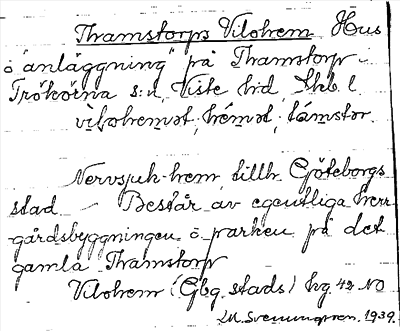 Thamstorps Vilohem Hus
o "anläggning" på Thamstorp
Trökörna s:n, Viste hd, Skb. l.
vilohemət, hémət, támstor.
Nervsjuk-hem, tillh. Göteborgs
stad — Består av egentliga herr-
gårdsbyggningen o parken på det
gamla Thamstorp
Vilohem (Gbg. stads) hg. 42 NO
M. Svenungsson. 1939.